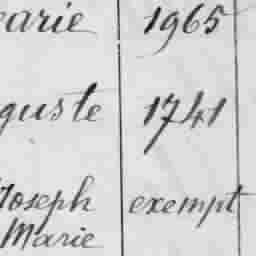 arie 1965
guste 1741
Joseph exempt
Marie